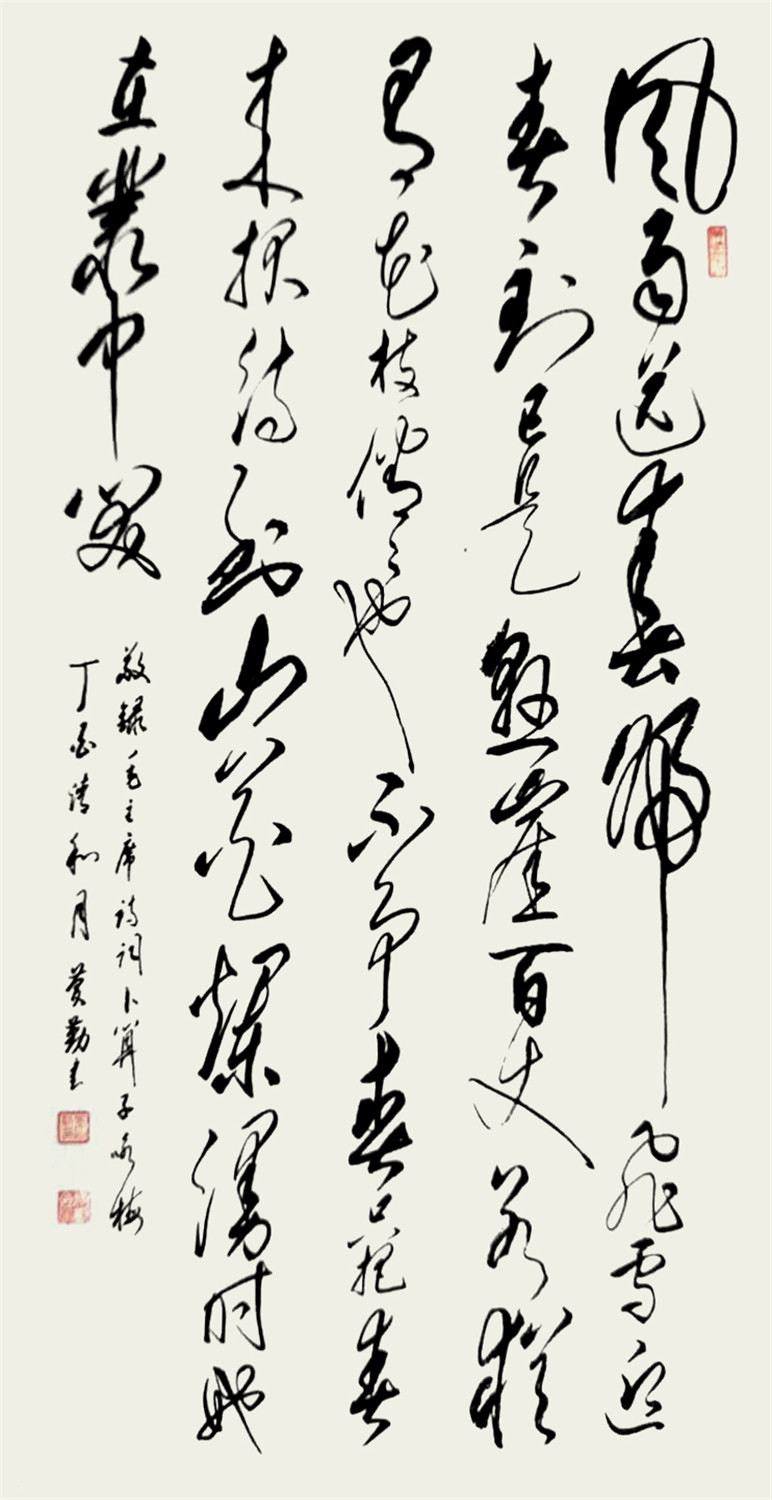 风雨送春歸飛雪迎
春到已是懸崖百丈冰猶
有花枝俏々也不争春只把春
来报待到山花爛漫时她
在叢中笑
敬録毛主席诗词卜算子咏梅
丁酉清和月黄勤书